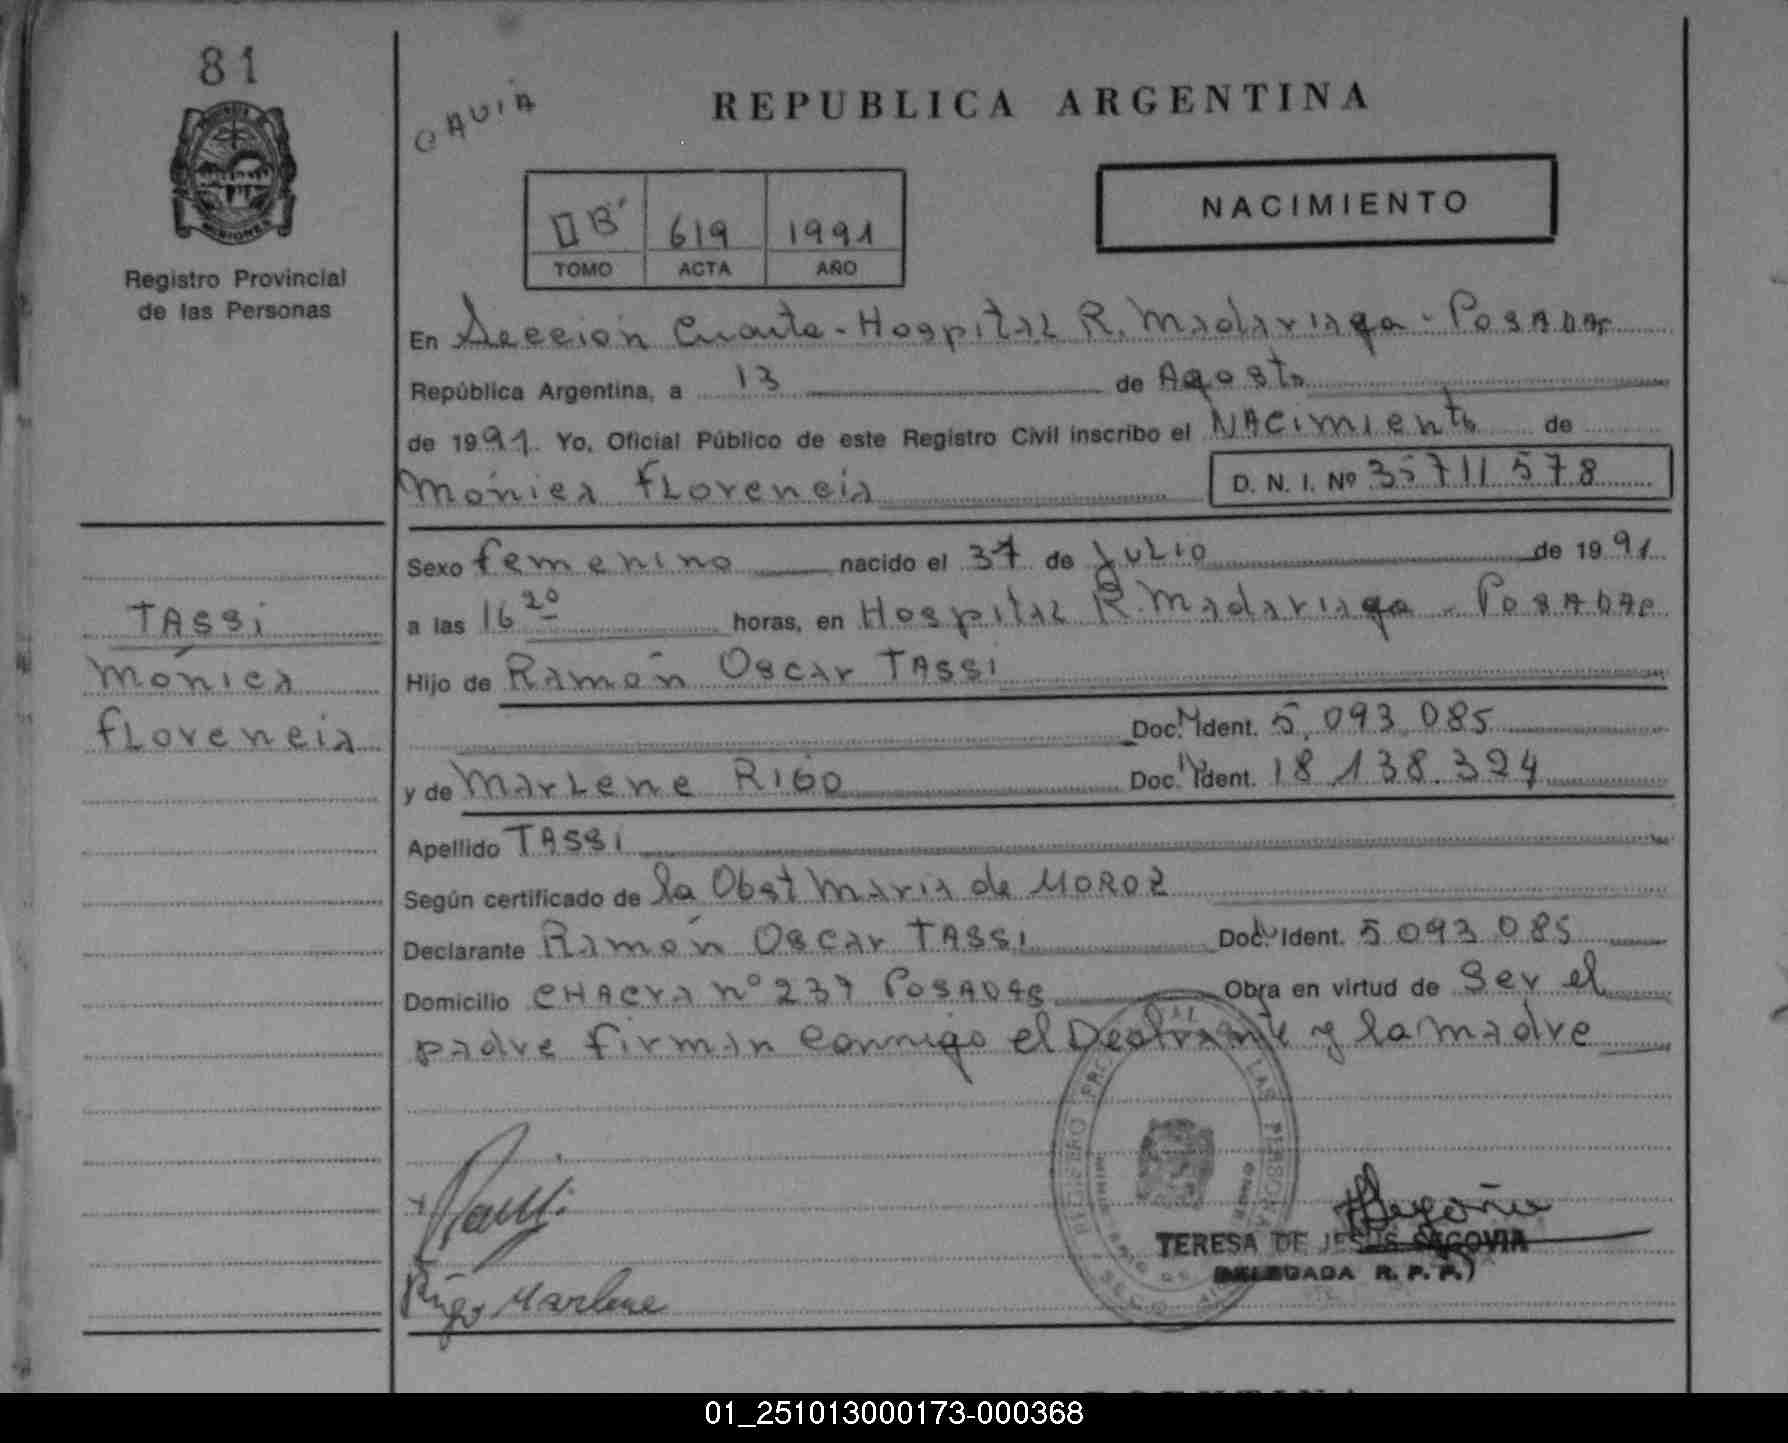 81
CAVIA
REPUBLICA ARGENTINA
NACIMIENTO
II B' 619 1991
TOMO ACTA AÑO
Registro Provincial
de las Personas
En Sección Cuarta - Hospital R. Madariaga - Posadas
República Argentina, a 13 de Agosto
de 1991. Yo, Oficial Público de este Registro Civil inscribo el Nacimiento de
Mónica Florencia D. N. I. Nº 35711578
Sexo femenino nacido el 31 de Julio de 1991
TASSi
Mónica
Florencia
a las 16 20 horas, en Hospital R. Madariaga - Posadas
Hijo de Ramón Oscar TASSi
Doc. Ident. 5.093.085
y de Marlene RIGO Doc. Ident. 18.138.324
Apellido TASSi
Según certificado de la Obst Maria de MOROZ
Declarante Ramón Oscar TASSi Doc. Ident. 5.093.085
Domicilio CHACra nº 237 Posadas Obra en virtud de Ser el
padre firman conmigo el Declarante y la madre
Rigo Marlene
TERESA DE JESUS SEGOVIA
DELEGADA R. P. P.
01_251013000173-000368